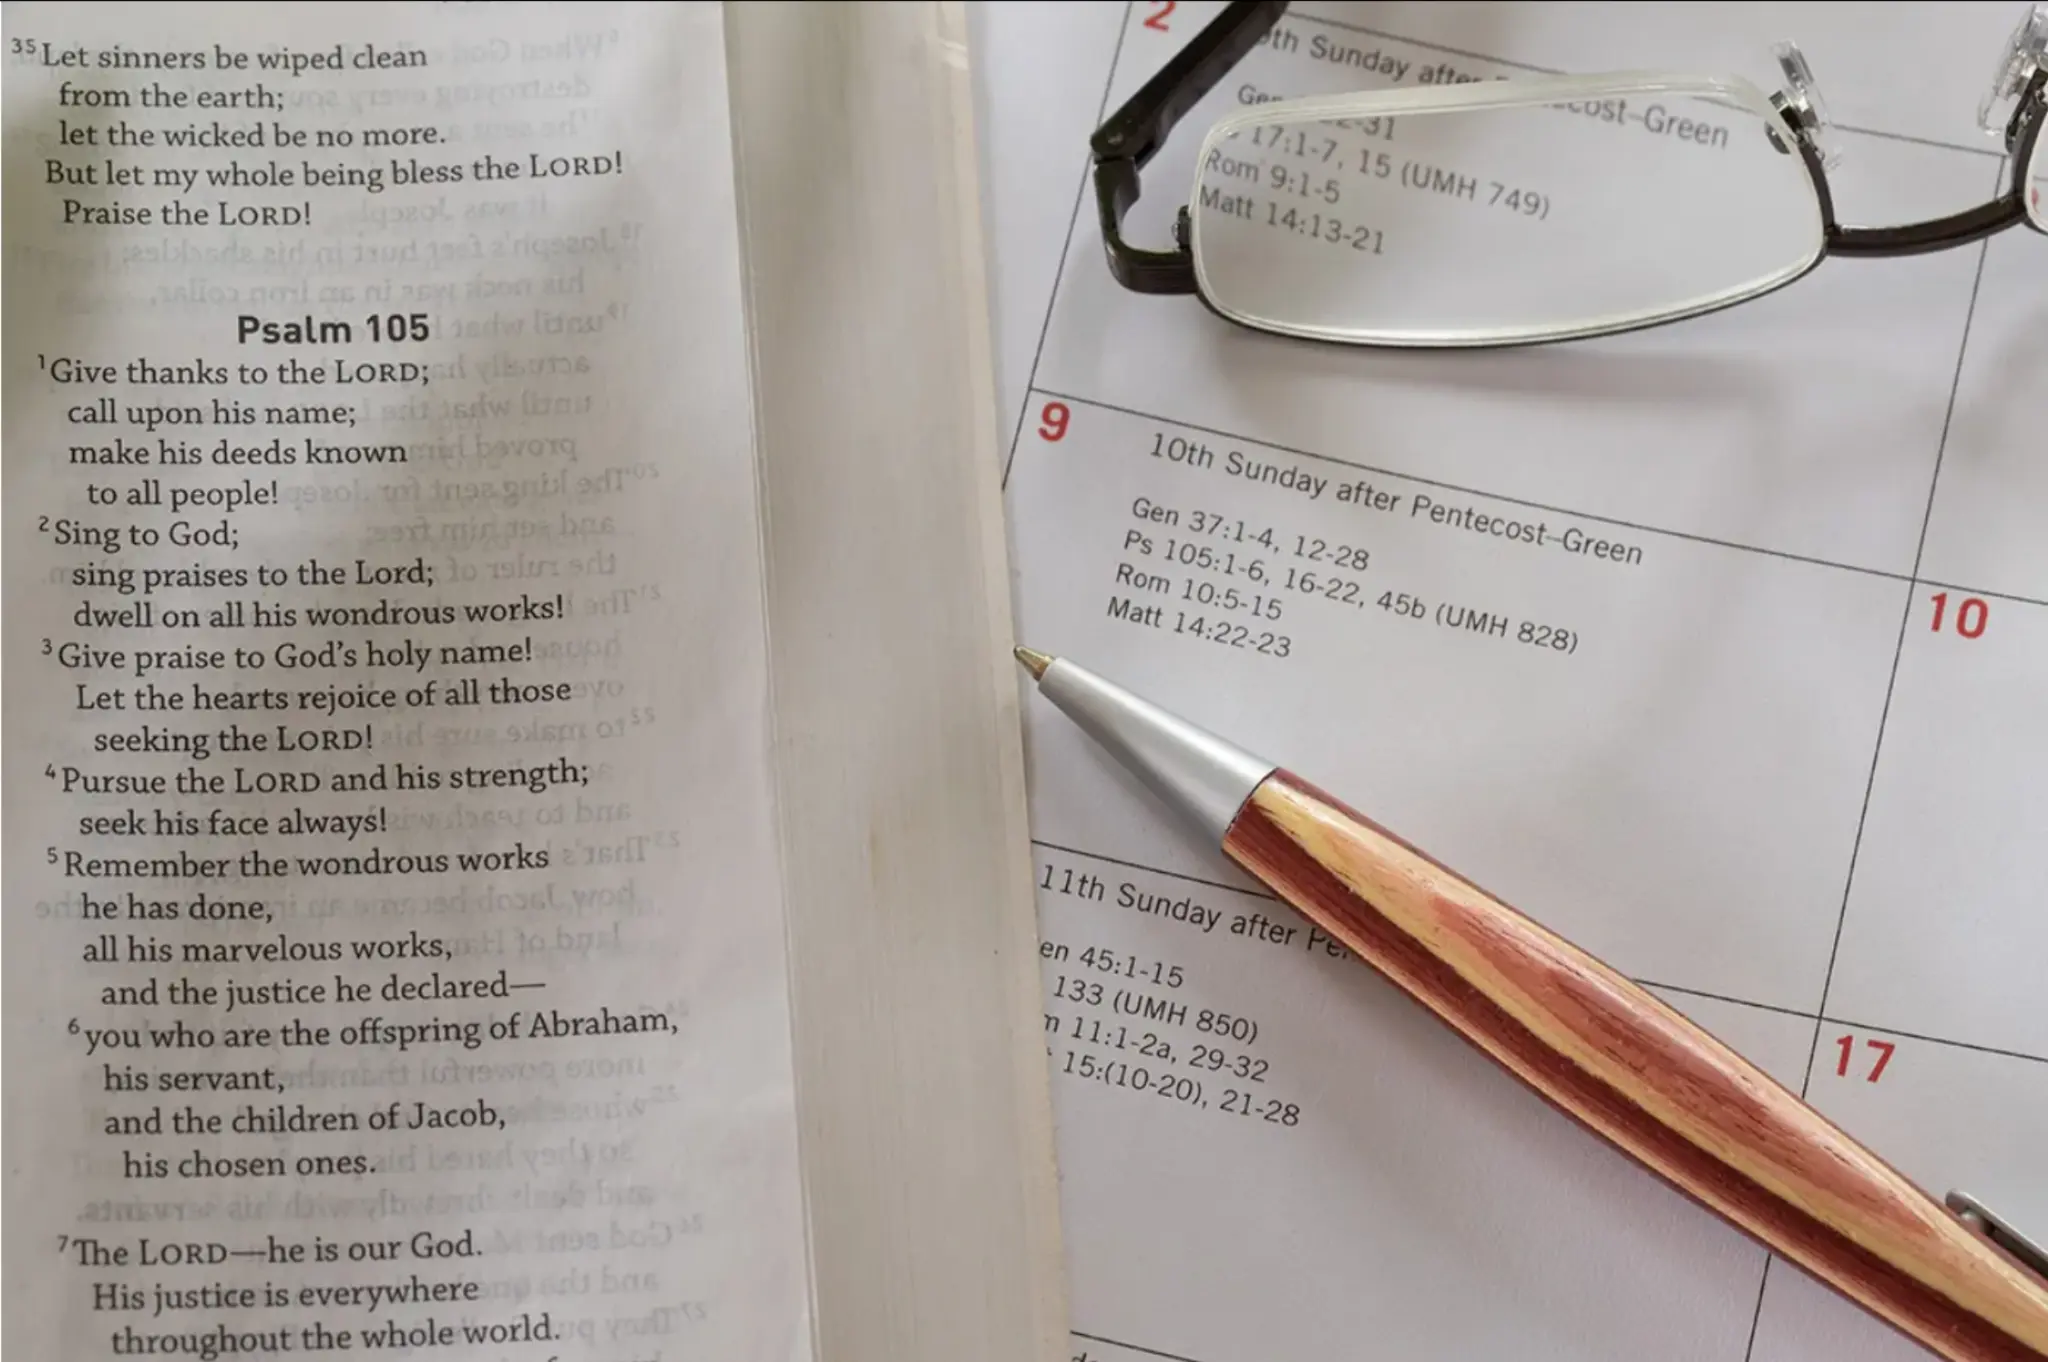 35 Let sinners be wiped clean
from the earth;
let the wicked be no more.
But let my whole being bless the LORD!
Praise the LORD!
Psalm 105
1 Give thanks to the LORD;
call upon his name;
make his deeds known
to all people!
2 Sing to God;
sing praises to the Lord;
dwell on all his wondrous works!
3 Give praise to God's holy name!
Let the hearts rejoice of all those
seeking the LORD!
4 Pursue the LORD and his strength;
seek his face always!
5 Remember the wondrous works
he has done,
all his marvelous works,
and the justice he declared—
6 you who are the offspring of Abraham,
his servant,
and the children of Jacob,
his chosen ones.
7 The LORD—he is our God.
His justice is everywhere
throughout the whole world.
2
Sunday after
17:1-7, 15 (UMH 749)
Rom 9:1-5
Matt 14:13-21
9
10th Sunday after Pentecost–Green
Gen 37:1-4, 12-28
Ps 105:1-6, 16-22, 45b (UMH 828)
Rom 10:5-15
Matt 14:22-23
10
11th Sunday after
45:1-15
133 (UMH 850)
11:1-2a, 29-32
15:(10-20), 21-28
17